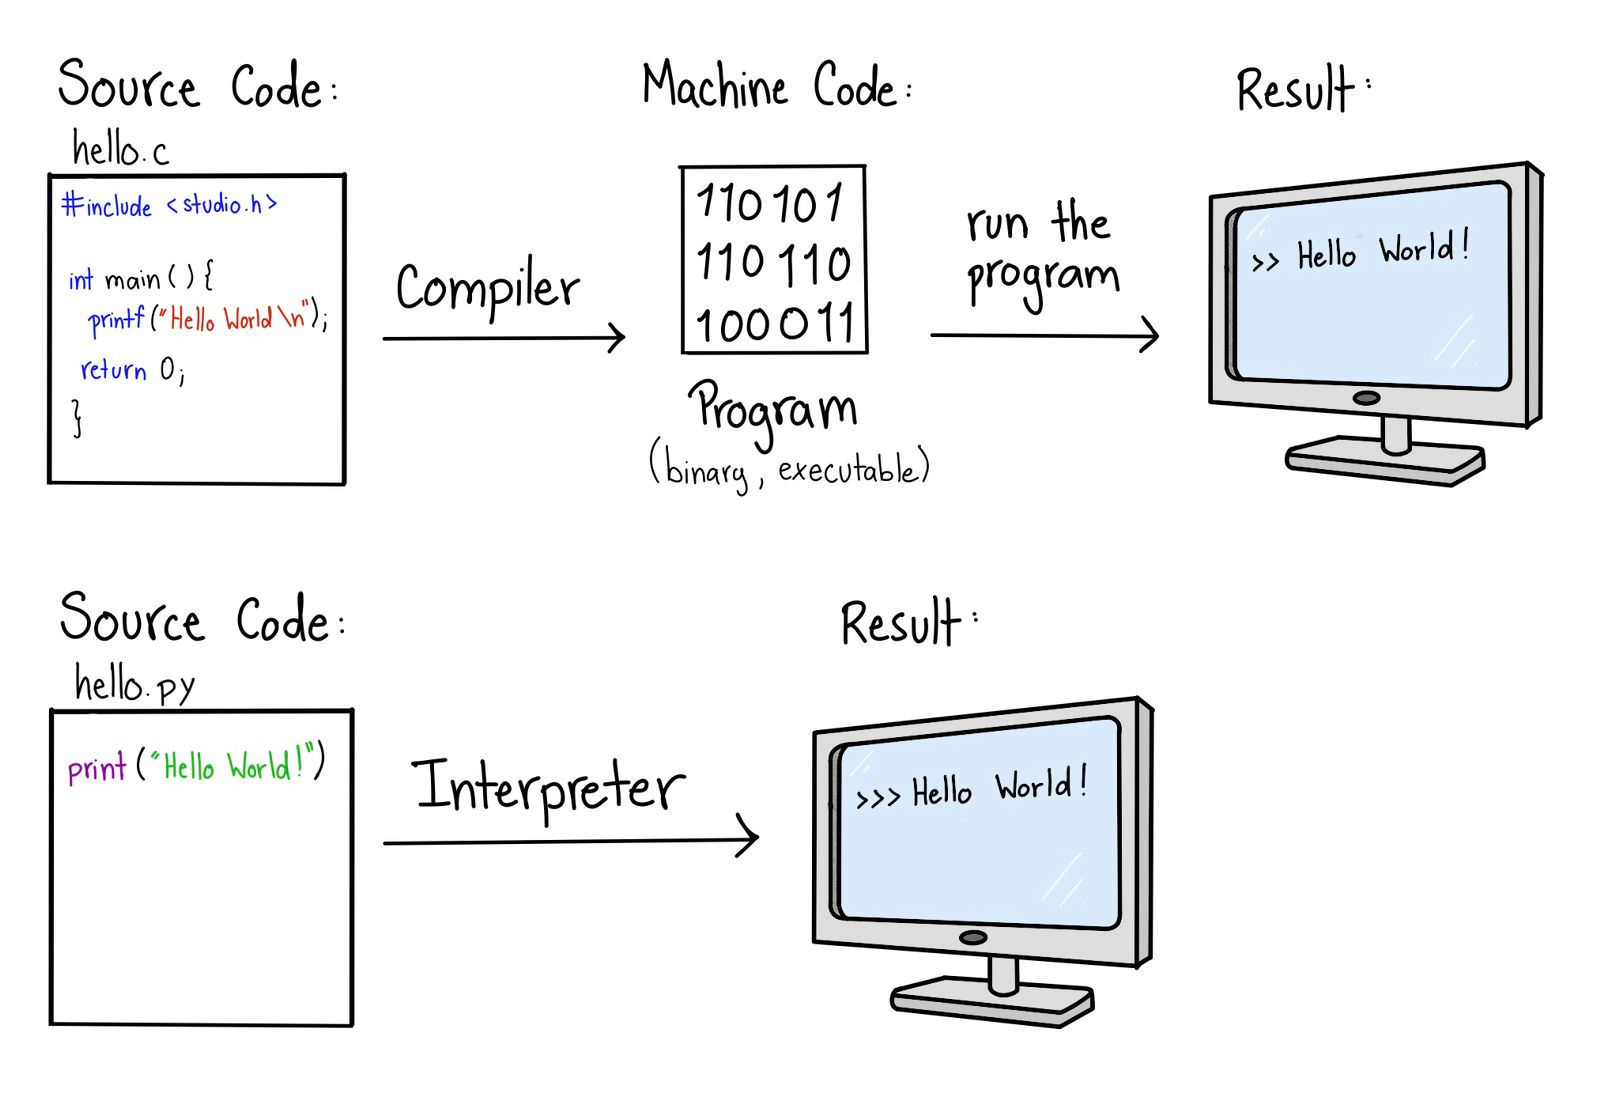 Source Code:
hello.c
#include <studio.h>
int main ( ) {
printf ("Hello World \n");
return 0;
}
Compiler
Machine Code:
110 101
110 110
100 011
Program
(binary, executable)
run the
program
Result:
>> Hello World!
Source Code:
hello.py
print ("Hello World!")
Interpreter
Result:
>>> Hello World!